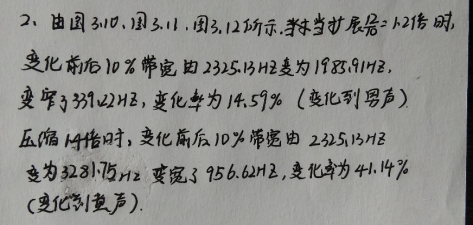 2、由图3.10、图3.11、图3.12所示.当扩展=1.2倍时,
变化前后10%带宽由2325.13HZ变为1985.91HZ,
变窄了339.22HZ,变化率为14.59%(变化到男声)
压缩1.4倍时,变化前后10%带宽由2325.13HZ
变为3281.75HZ变宽了956.62HZ,变化率为41.14%
(变化到童声).